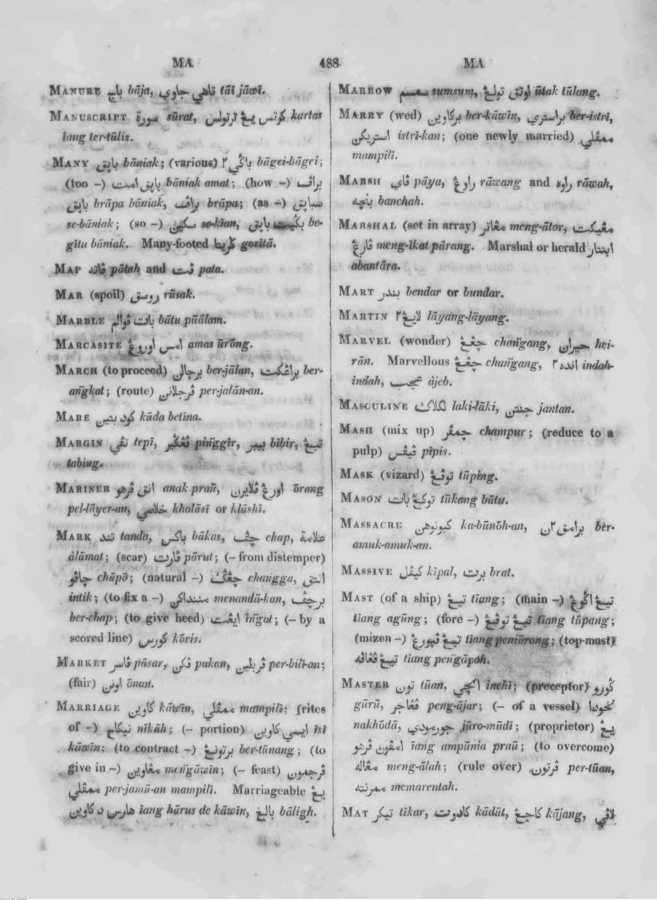 MA 488 MA
MANURE باج bāja, تاهي جاوي tāi jāwī.
MANUSCRIPT سورة sūrat, كرتس يڠ ترتولس kartas
iang ter-tūlis.
MANY باپق bāniak; (various) باگي٢ bāgei-bāgei;
(too –) باپق امت bāniak amat; (how –) براڤ
باپق brāpa bāniak, براڤ brāpa; (as –) سباپق
se-bāniak; (so –) سكين se-kīan, بگيت باپق be-
gītu bāniak. Many-footed
MAP pātah and ڤت pata.
MAR (spoil) روسق rūsak.
MARBLE باتو ڤوالم bātu pūālam.
MARCASITE امس اوروڠ amas ūrong.
MARCH (to proceed) برجالن ber-jālan, براڠكت ber-
angkat; (route) ڤرجلانن per-jālān-an.
MARE كود بتين kūda betīna.
MARGIN تڤي tepī, ڤڠڬير pinggir, بيبر bībir, تبيڠ
tabing.
MARINER انق ڤراهو anak praū, اورڠ ڤلايرن ūrang
pel-lāyer-an, خلاصي khalāsī or klāshī.
MARK تند tanda, باكس bākas, چڤ chap, علامة
ālāmat; (scar) ڤارت pārut; (– from distemper)
چاڤو chāpō; (natural –) چڠڬ changga, انتق
intik; (to fix a –) مننداكن menandā-kan, برچڤ
ber-chap; (to give heed) ايڠت īngat; (– by a
scored line) كورس kōris.
MARKET ڤاسر pāsar, ڤكن pakan, ڤربلين per-bili-an;
(fair) اونن ōnan.
MARRIAGE كاوين kāwīn, ممڤلي mampilī; (rites
of –) نيكاح nīkāh; (– portion) ايسي كاوين īsī
kāwīn; (to contract –) برتونڠ ber-tūnang; (to
give in –) مڠاوين mengāwīn; (– feast) ڤرجمون
ممڤلي per-jamū-an mampilī. Marriageable يڠ
هارس د كاوين iang hārus de kāwīn, بالغ bāligh.
MARROW سمسم sumsum, اوتق تولڠ ūtak tūlang.
MARRY (wed) بركاوين ber-kāwīn, براستري ber-istri,
استريكن istri-kan; (one newly married) ممڤلي
mampilī.
MARSH ڤاي pāya, راوڠ rāwang and راوه rāwah,
بنچه banchah.
MARSHAL (set in array) مڠاتر meng-ātor, مڠيكت
ڤارڠ meng-īkat pārang. Marshal or herald ابنتار
abantāra.
MART بندر bendar or bundar.
MARTIN لايڠ٢ lāyang-lāyang.
MARVEL (wonder) چڠڠ changang, حيران hei-
rān. Marvellous چڠڠ changang, انده٢ indah-
indah, عجب ājeb.
MASCULINE لاكلاك laki-lāki, جنتن jantan.
MASH (mix up) چمڤر champur; (reduce to a
pulp) ڤيڤس pīpis.
MASK (vizard) توڤڠ tūping.
MASON توكڠ باتو tūkang bātu.
MASSACRE كبونوهن ka-būnōh-an, برامق٢ن ber-
amuk-amuk-an.
MASSIVE كيڤل kīpal, برت brat.
MAST (of a ship) تيڠ tīang; (main –) تيڠ اڬوڠ
tiang agūng; (fore –) تيڠ توڤڠ tiang tūpang;
(mizen –) تيڠ ڤڽورڠ tiang peniūrong; (top-mast)
تيڠ ڤڠاڤه tiang pengāpoh.
MASTER تون tūan, انچي inchī; (preceptor) ڬورو
gūrū, ڤڠاجر peng-ājar; (– of a vessel) نخودا
nakhōdā, جورمودي jūro-mūdi; (proprietor) يڠ
امڤون ڤراهو iang ampūnia praū; (to overcome)
مڠاله meng-ālah; (rule over) ڤرتون per-tūan,
ممرنته memarentah.
MAT تيكر tīkar, كادوت kādūt, كاجڠ kājang, لاڤي